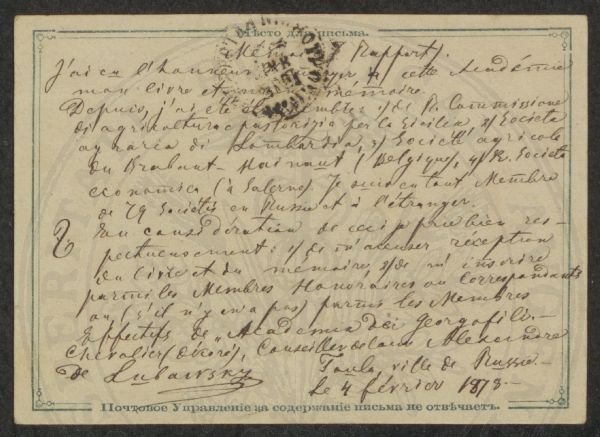 Мѣсто для письма.
Mémoire (Rapport).
J'ai eu l'honneur d'envoyer à cette Académie
mon livre et mon mémoire.
Depuis, j'ai été élu Membre: 1/ de R. Commissione
di agricoltura e pastorizia per la Sicilia, 2/ Società
agraria di Lombardia, 3/ Société agricole
du Brabant-Hainaut (Belgique), 4/ R. Società
economica (à Salerne). Je suis en tout Membre
de 79 Sociétés en Russie et à l'étranger.
En considération de ceci je prie bien res-
pectueusement: 1/ de m'accuser réception
du livre et du mémoire, 2/ de m'inscrire
parmi les Membres Honoraires ou Correspondants
ou (s'il n'y en a pas) parmi les Membres
Effectifs de „Academia dei Georgofili.-
Chevalier (décoré), Conseiller de la cour Alexandre
de Lubawsky
Toula, ville de Russie.-
Le 4 février 1873.-
Почтовое Управленіе за содержаніе письма не отвѣчаетъ.